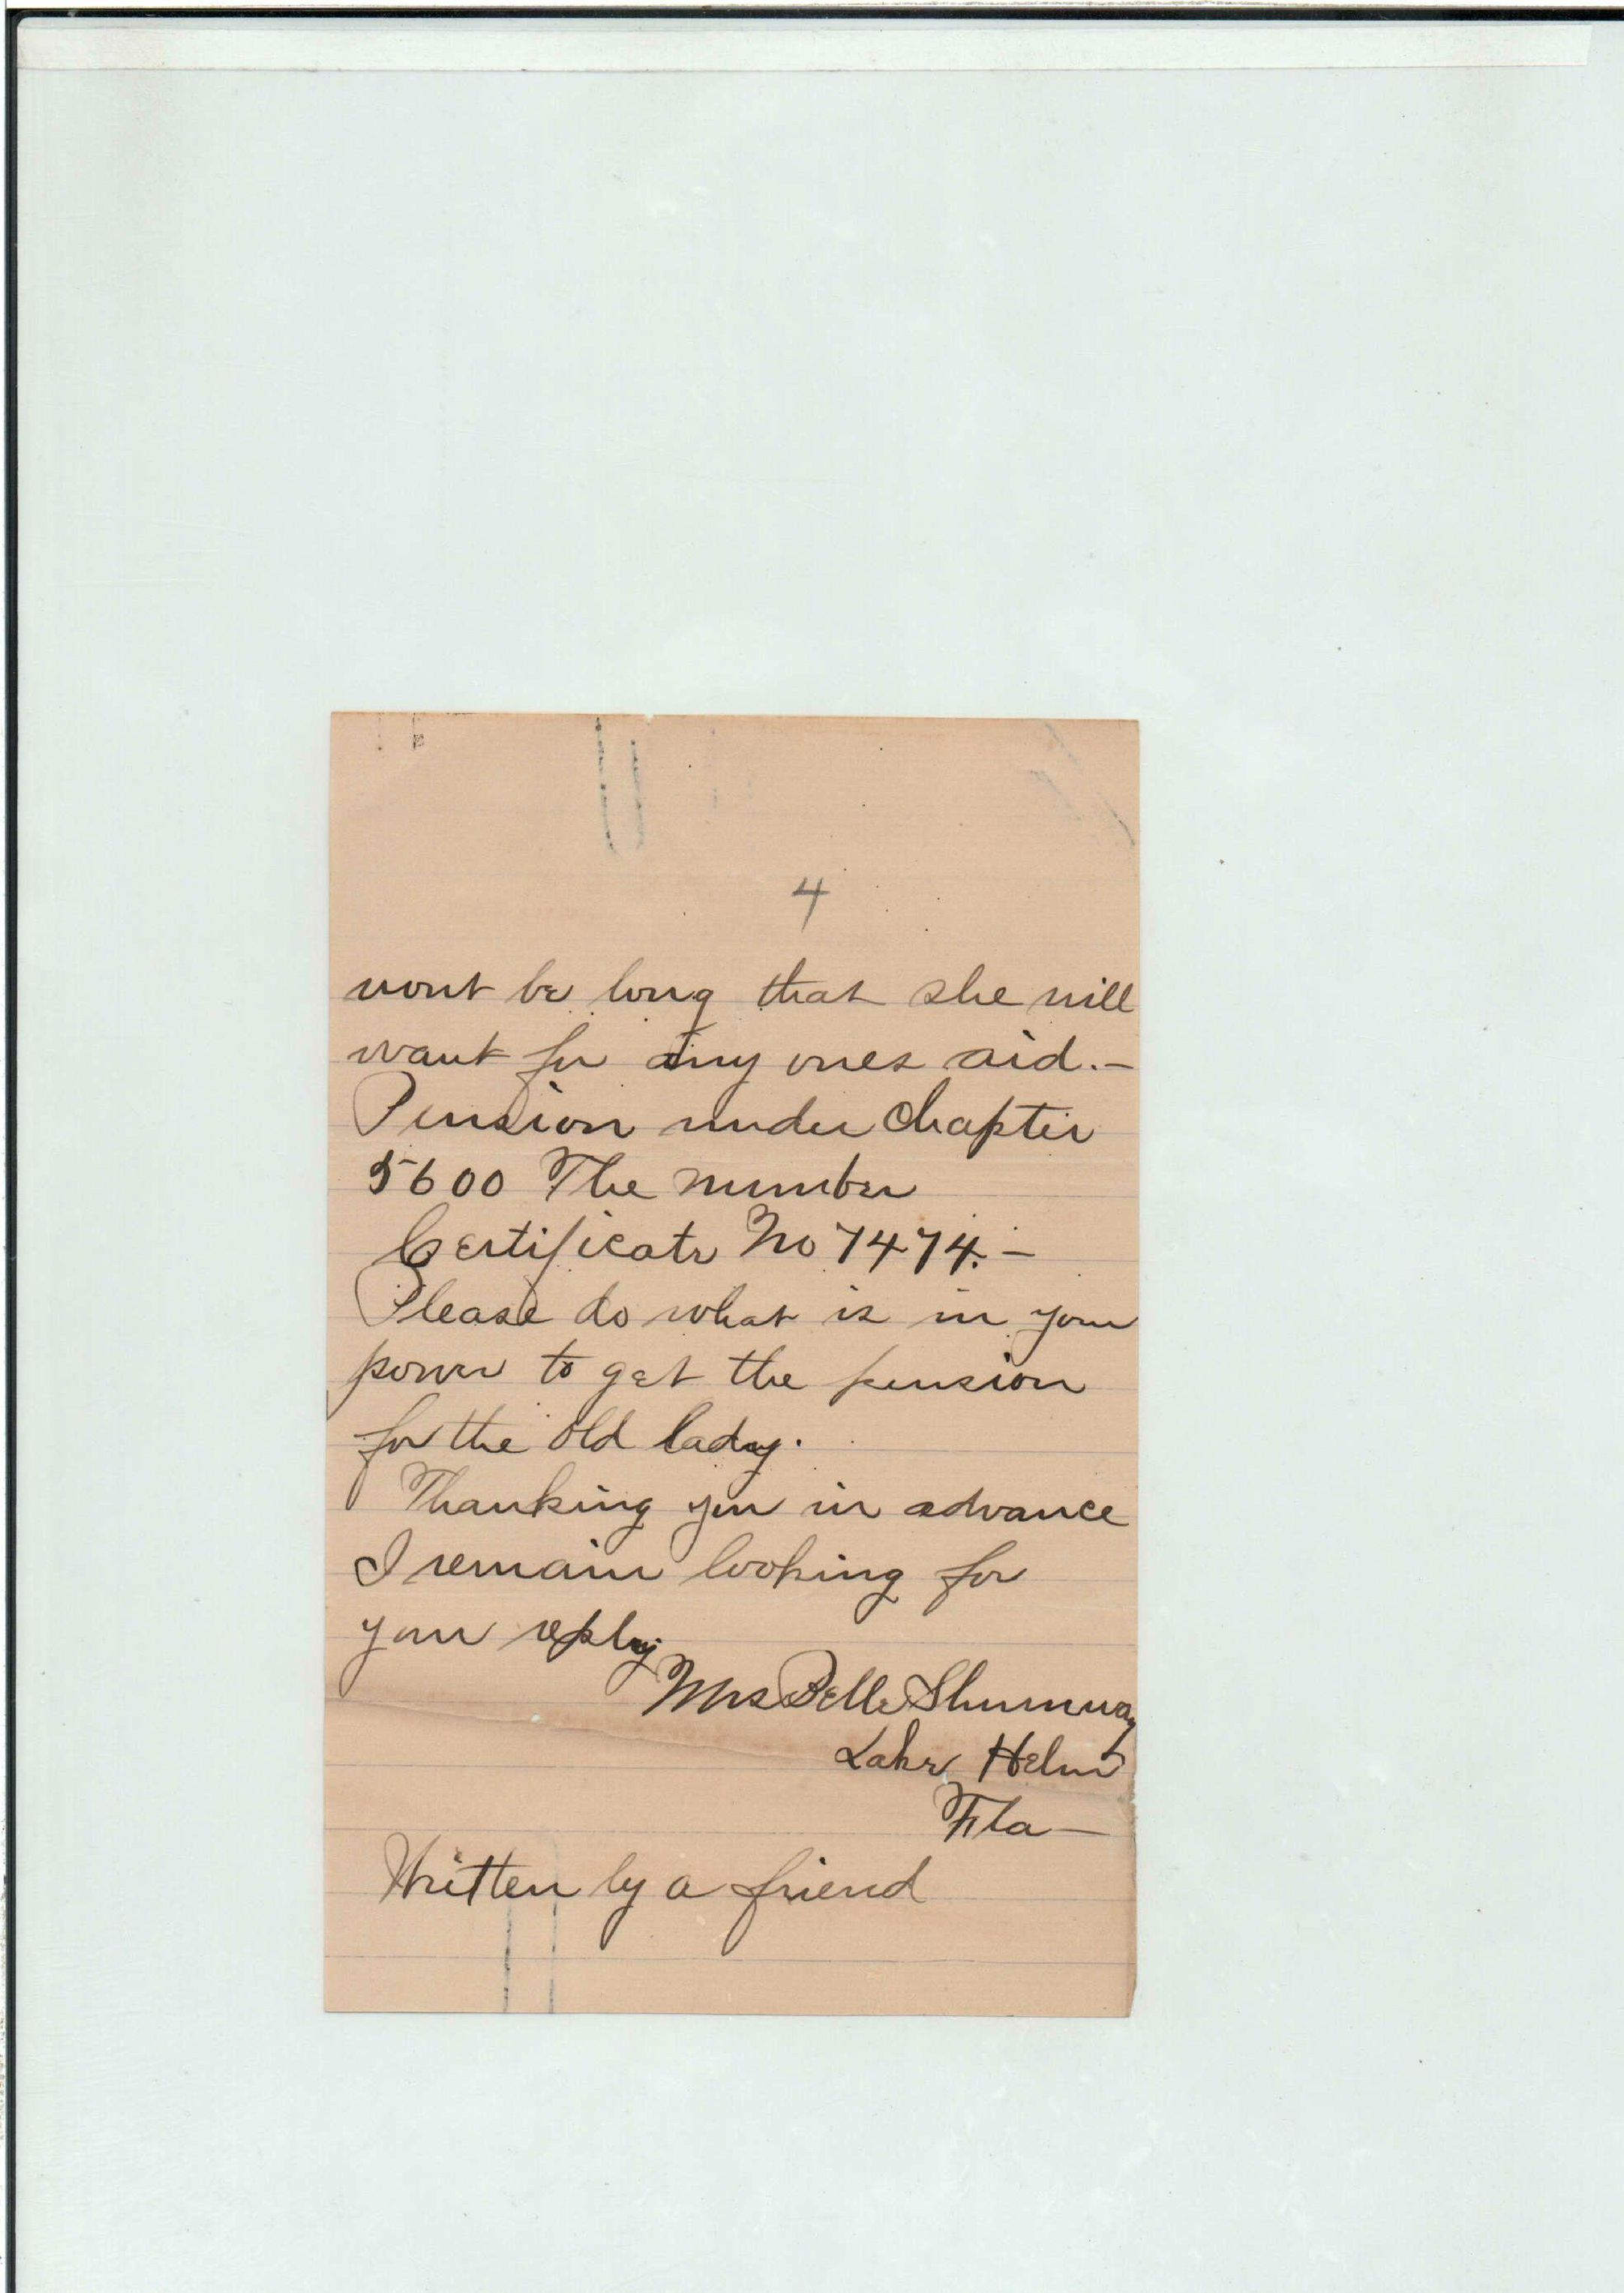 4
wont be long that she will
want for any ones aid.—
Pension under Chapter
5600 The number
Certificate No 7474.—
Please do what is in your
power to get the pension
for the old lady.
Thanking you in advance
I remain looking for
your reply.
Mrs Belle Shumway
Lake Helen
Fla—
Written by a friend